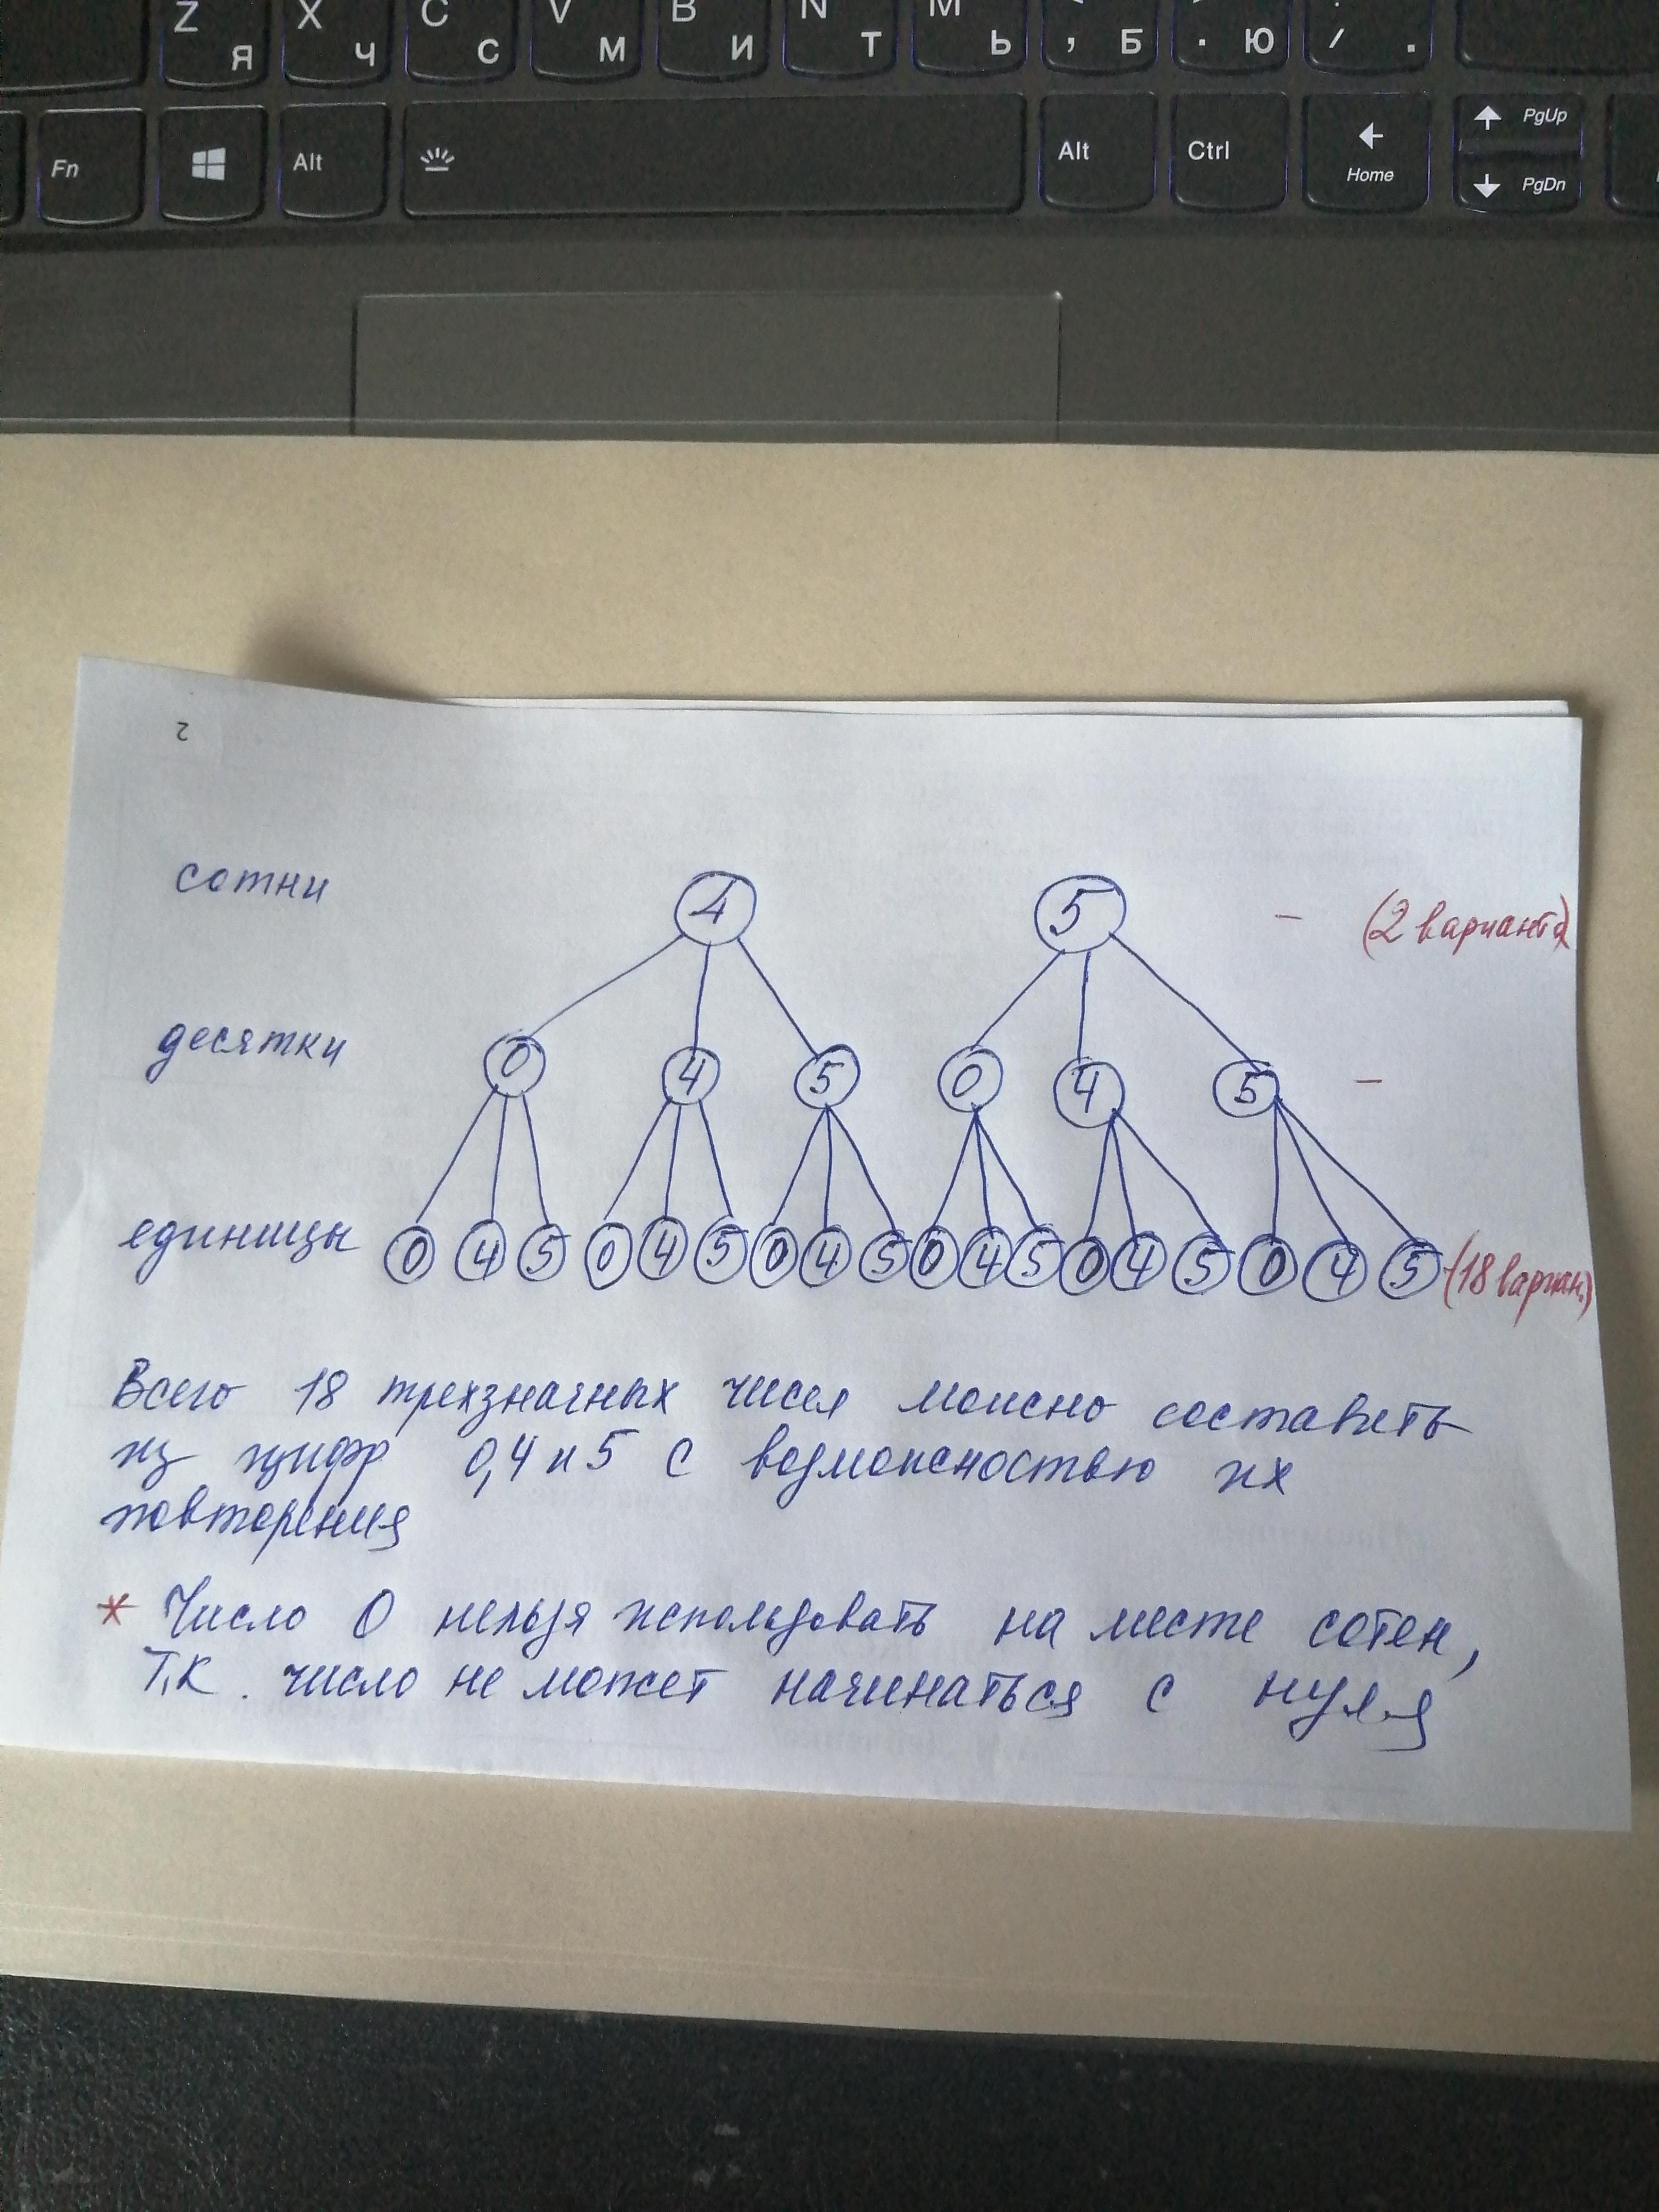 Z X C V B N M < > ?
Я Ч С М И Т Ь , Б . Ю / .
Fn Alt Alt Ctrl Home PgUp
PgDn
2
сотни 4 5 - (2 варианта)
десятки 0 4 5 0 4 5 -
единицы 0 4 5 0 4 5 0 4 5 0 4 5 0 4 5 0 4 5 - (18 вариан.)
Всего 18 трехзначных чисел можно составить
из цифр 0,4 и 5 с возможностью их
повторения
* Число 0 нельзя использовать на месте сотен,
т.к. число не может начинаться с нуля